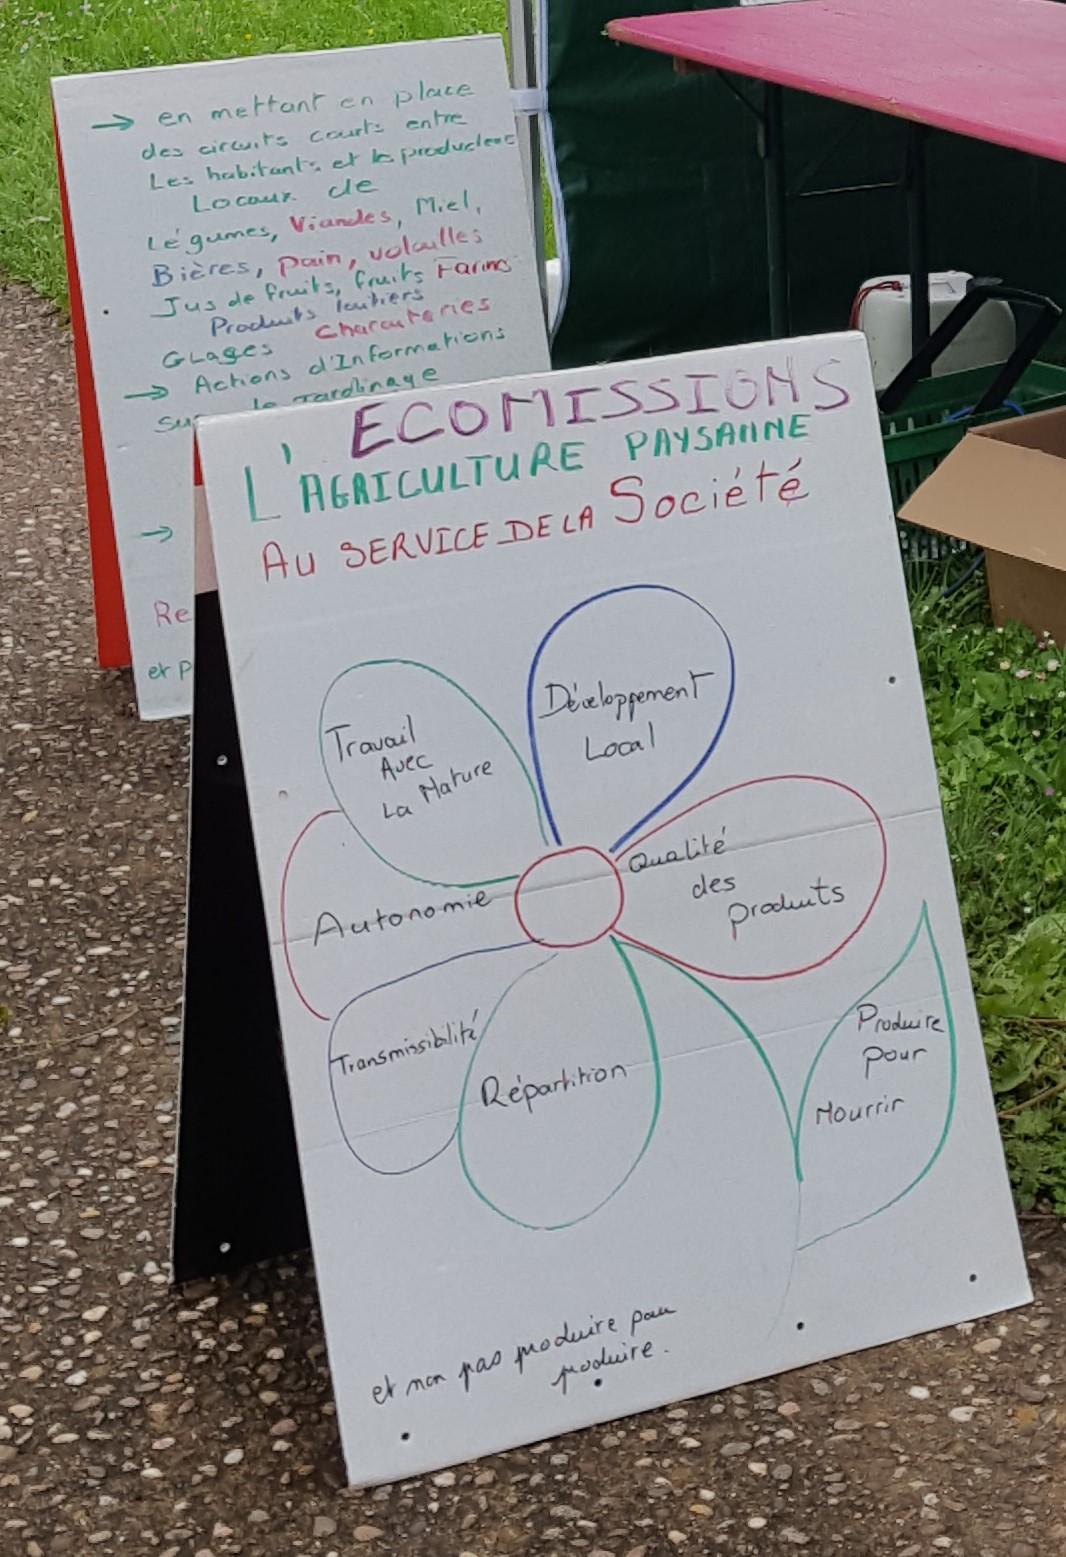 → en mettant en place
des circuits courts entre
Les habitants et le producteur
Locaux de
Légumes, Viandes, Miel,
Bières, pain, volailles
Jus de fruits, fruits Farine
Produits laitiers
Glages Charcuteries
→ Actions d'Informations
sur le Jardinage
→
Re
et p
ECOMISSIONS
L'AGRICULTURE PAYSANNE
AU SERVICE DE LA Société
Développement
Local
Travail
Avec
La Nature
Qualité
des
produits
Autonomie
Transmissibilité
Répartition
Produire
pour
Nourrir
et non pas produire pour
produire.